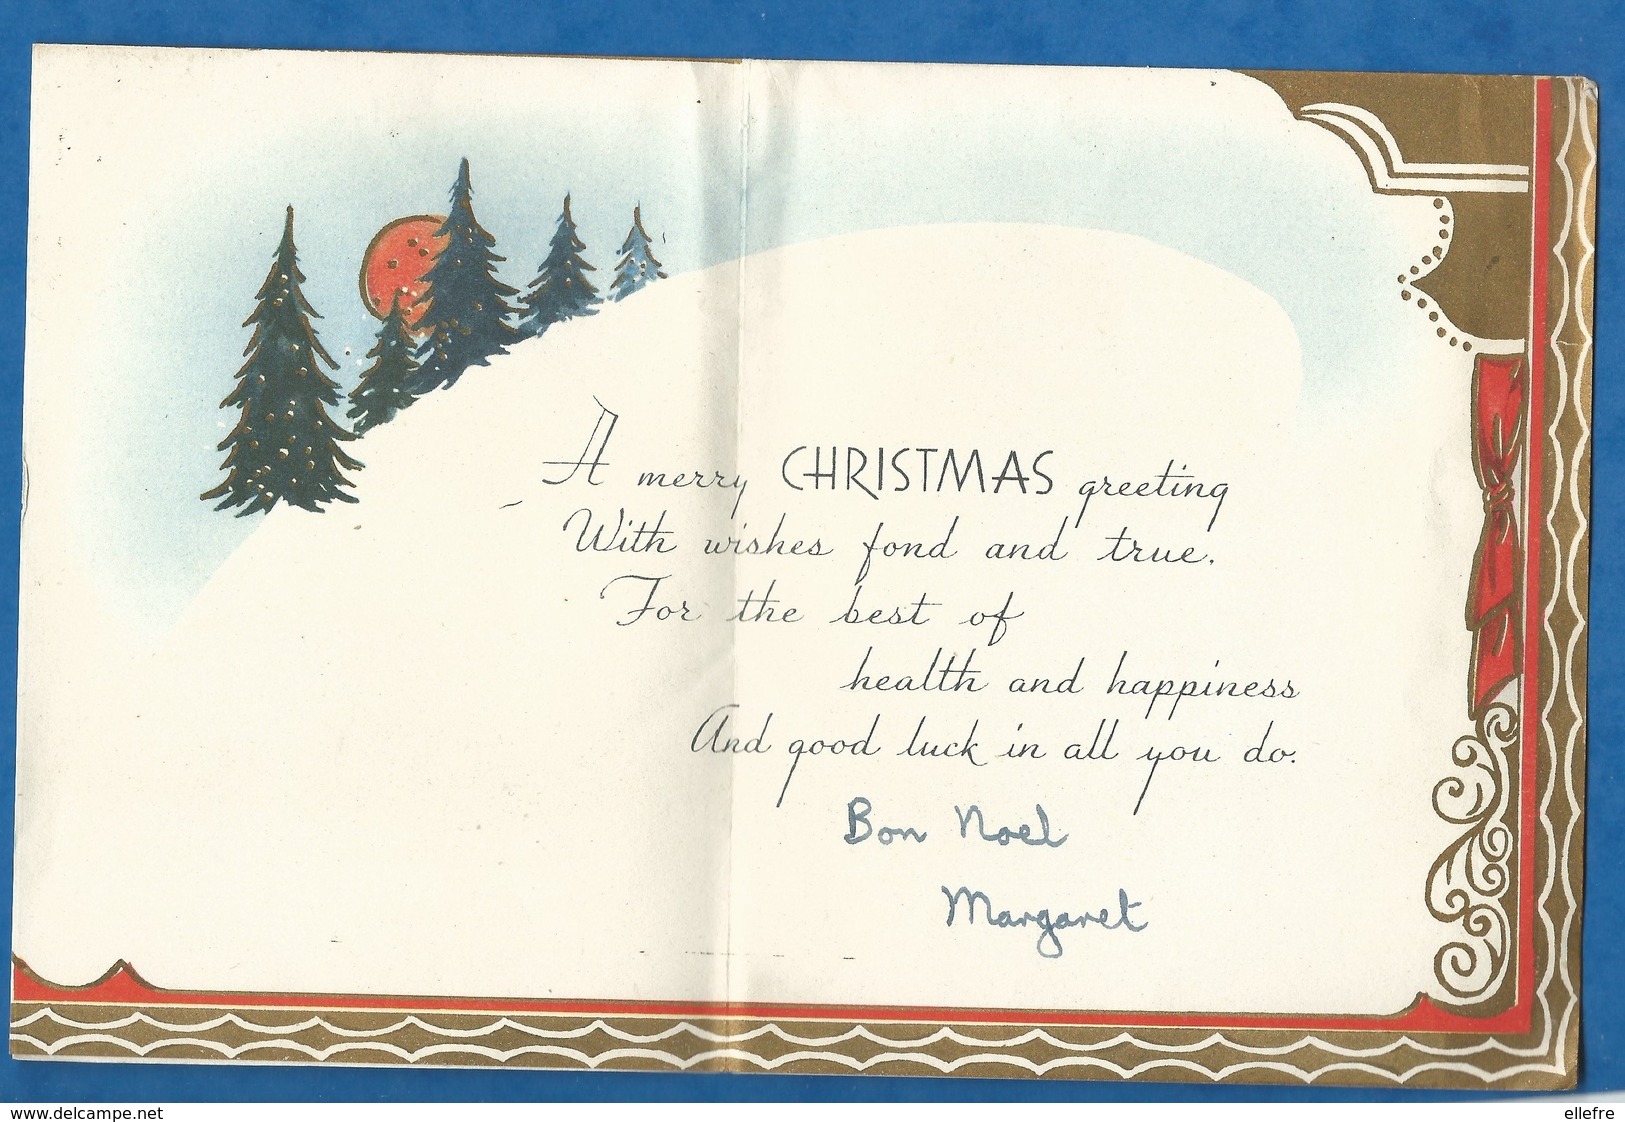 A merry CHRISTMAS greeting
With wishes fond and true.
For the best of
health and happiness
And good luck in all you do.
Bon Noel
Margaret
www.delcampe.net
ellefre